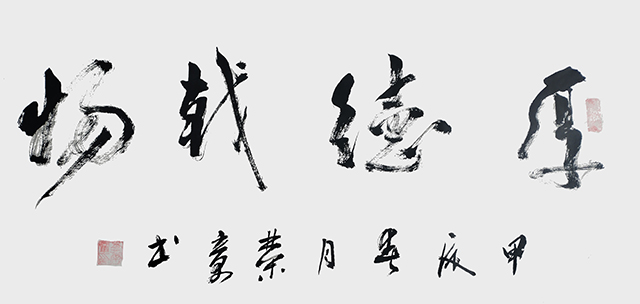 厚德载物
甲辰春月荣豪书